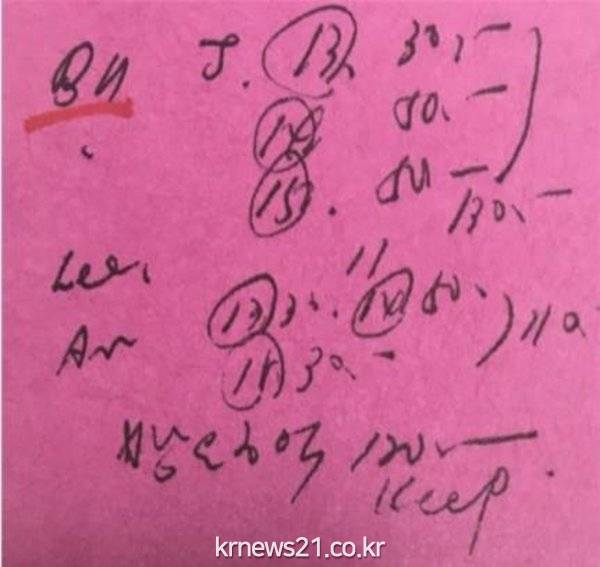 BH J. 13, 30,-
14 50.-
15. 50 - 130.-
Lee,
An 13 30. 14 50. ) 110
15 30.-
120.-
Keep.
krnews21.co.kr